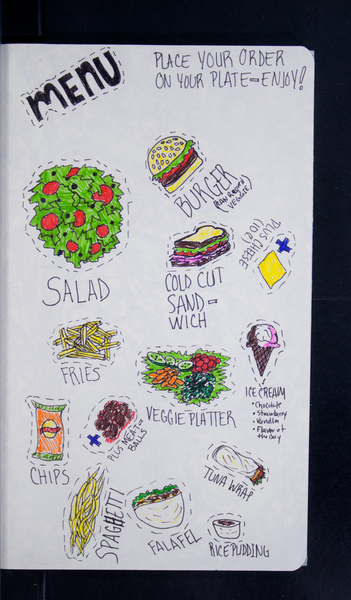 MENU
PLACE YOUR ORDER
ON YOUR PLATE - ENJOY!
BURGER
VEGGIE)
PLUS CHEESE
SALAD
COLD CUT
SAND-
WICH
FRIES
ICE CREAM
• Chocolate
• Strawberry
• Vanilla
• Flavor of
the Day
VEGGIE PLATTER
PLUS MEAT-
BALLS
CHIPS
TUNA WRAP
SPAGHETTI
FALAFEL
RICE PUDDING